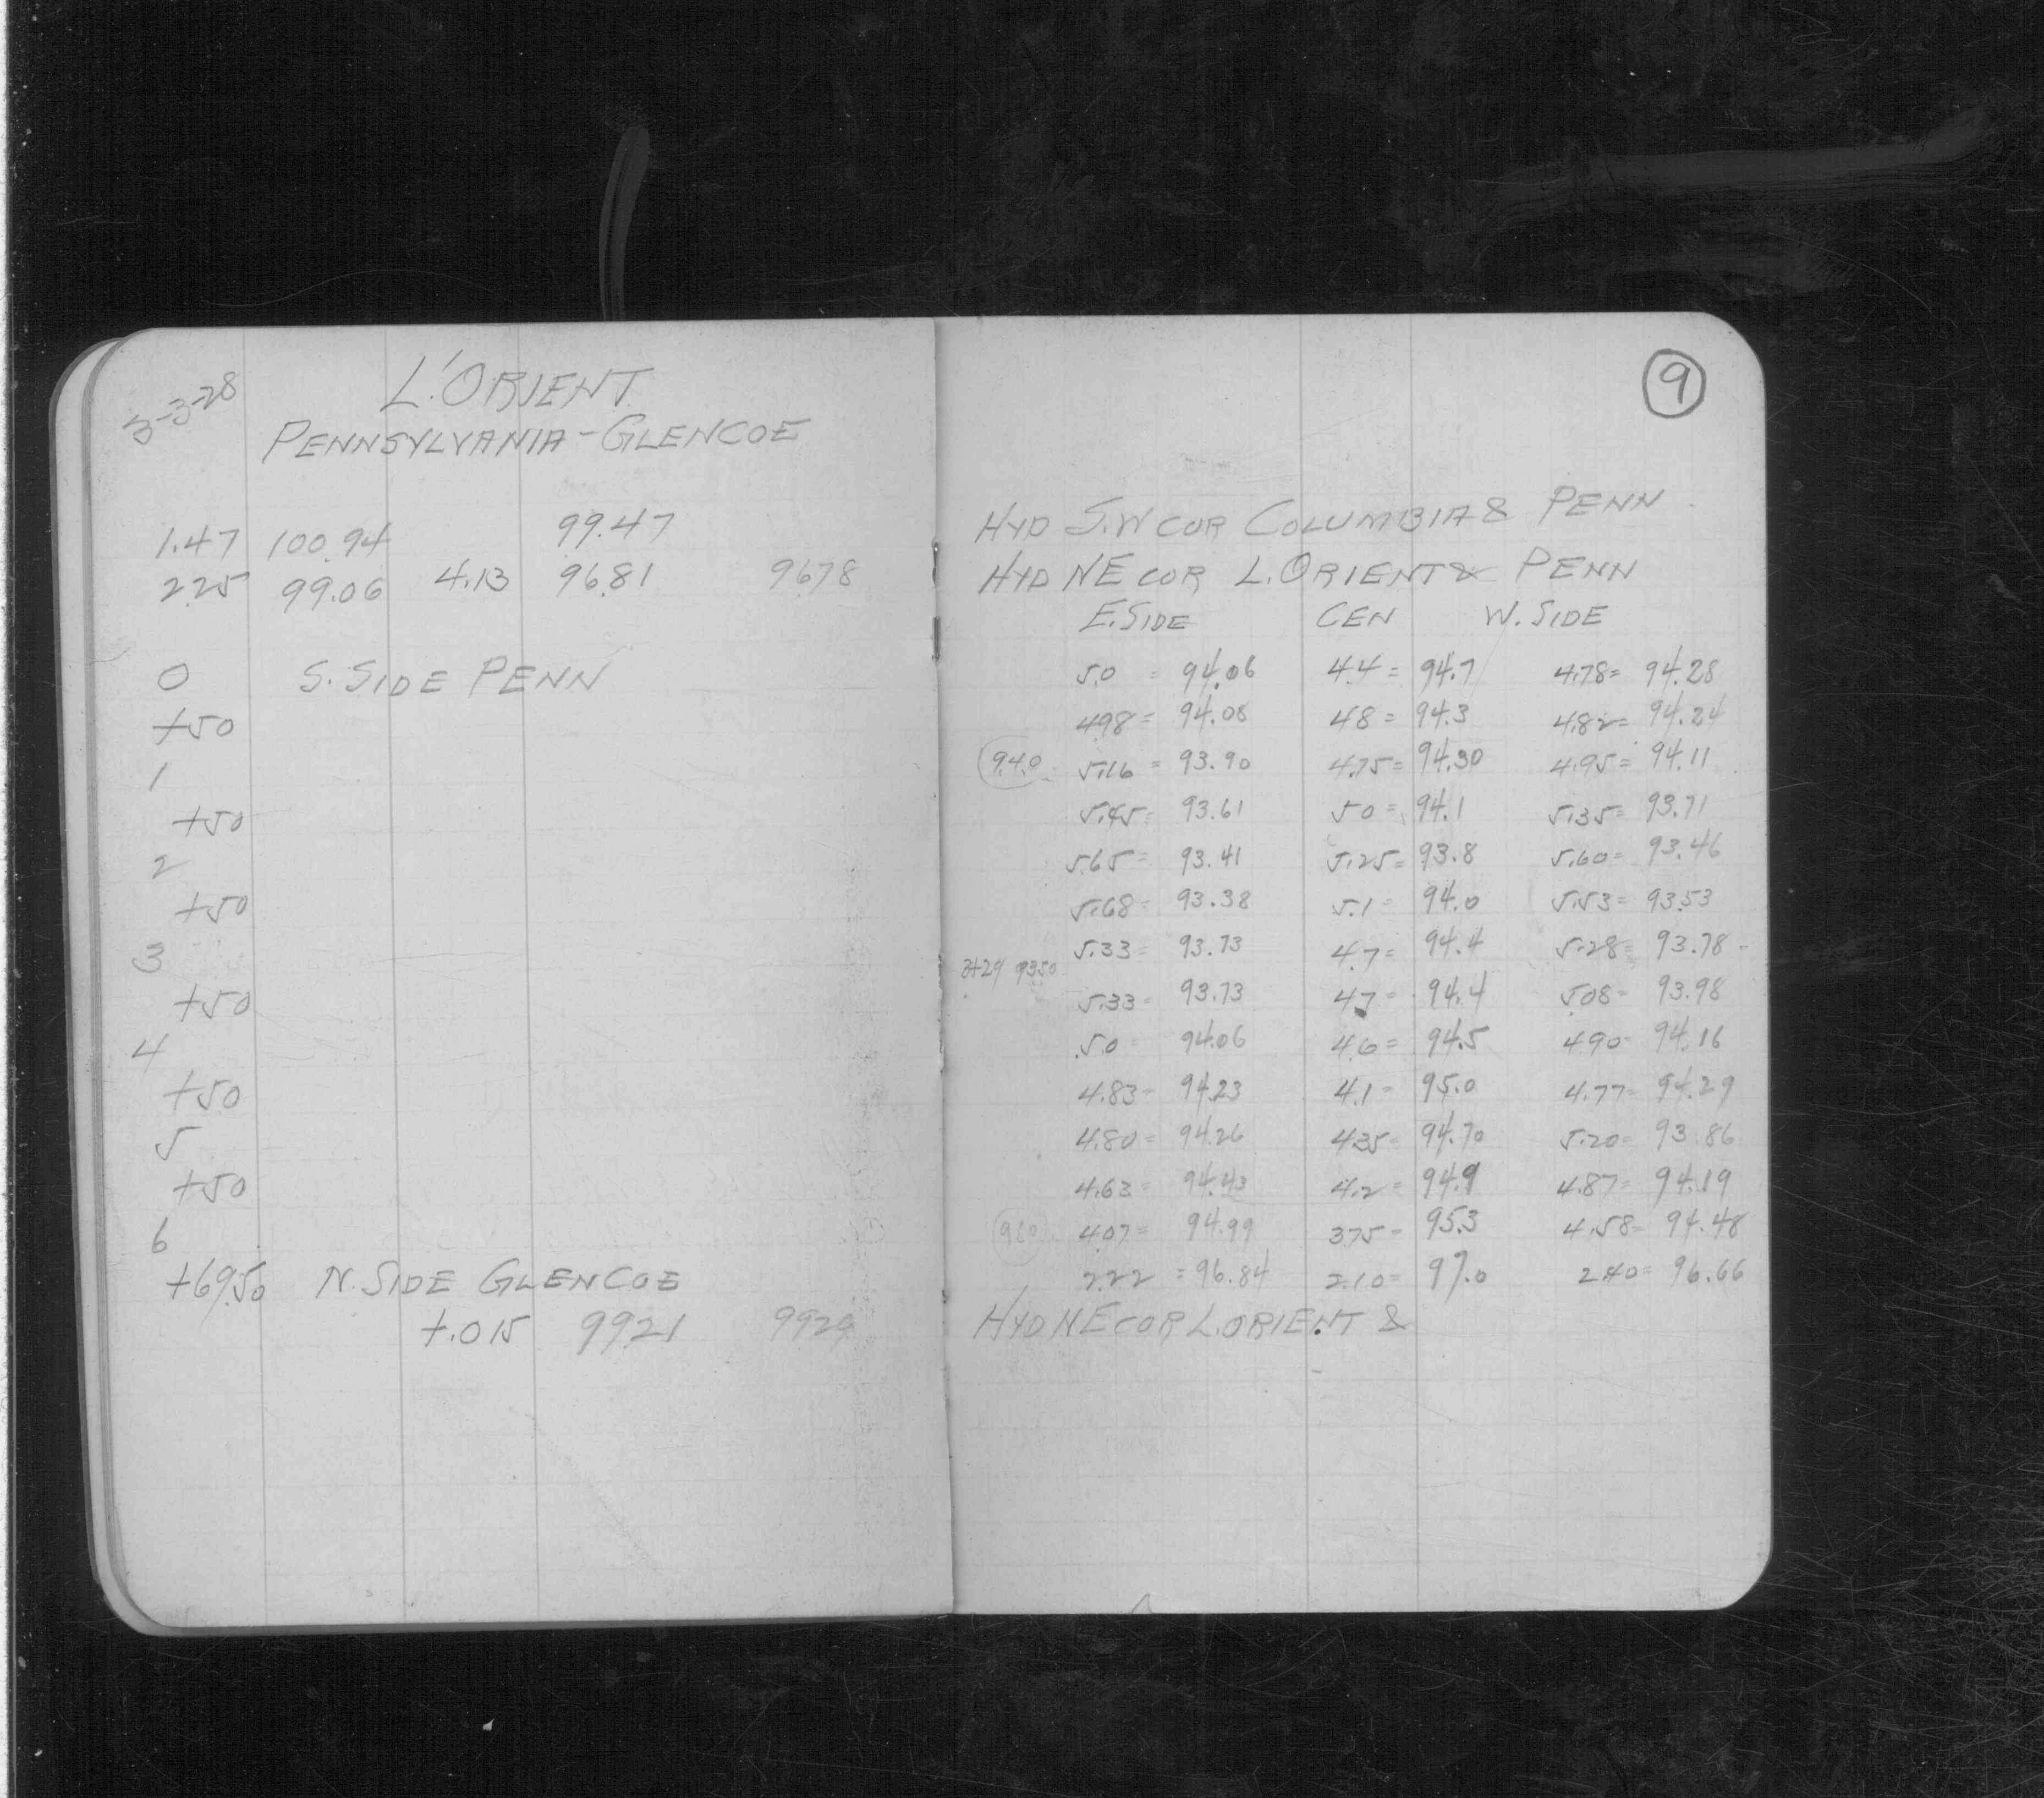 3-3-28
L'ORIENT
PENNSYLVANIA-GLENCOE
1.47 100.94 99.47
2.25 99.06 4.13 96.81 96.78
0 S. SIDE PENN
+50
1
+50
2
+50
3
+50
4
+50
5
+50
6
+69.50 N. SIDE GLENCOE
+.015 9921
9
HYD S.W COR COLUMBIA & PENN
HYD NE COR L.ORIENT & PENN
E. SIDE CEN W. SIDE
5.0 = 94.06 4.4 = 94.7 4.78 = 94.28
4.98 = 94.08 4.8 = 94.3 4.82 = 94.24
94.0 5.16 = 93.90 4.75 = 94.30 4.95 = 94.11
5.45 = 93.61 5.0 = 94.1 5.35 = 93.71
5.65 = 93.41 5.25 = 93.8 5.60 = 93.46
5.68 = 93.38 5.1 = 94.0 5.53 = 93.53
5.33 = 93.73 4.7 = 94.4 5.28 = 93.78
3+29 93.50
5.33 = 93.73 4.7 = 94.4 5.08 = 93.98
5.0 = 94.06 4.6 = 94.5 4.90 = 94.16
4.83 = 94.23 4.1 = 95.0 4.77 = 94.29
4.80 = 94.26 4.35 = 94.70 5.20 = 93.86
4.63 = 94.43 4.2 = 94.9 4.87 = 94.19
4.07 = 94.99 3.75 = 95.3 4.58 = 94.48
2.22 = 96.84 2.10 = 97.0 2.40 = 96.66
HYD NE COR L.ORIENT &